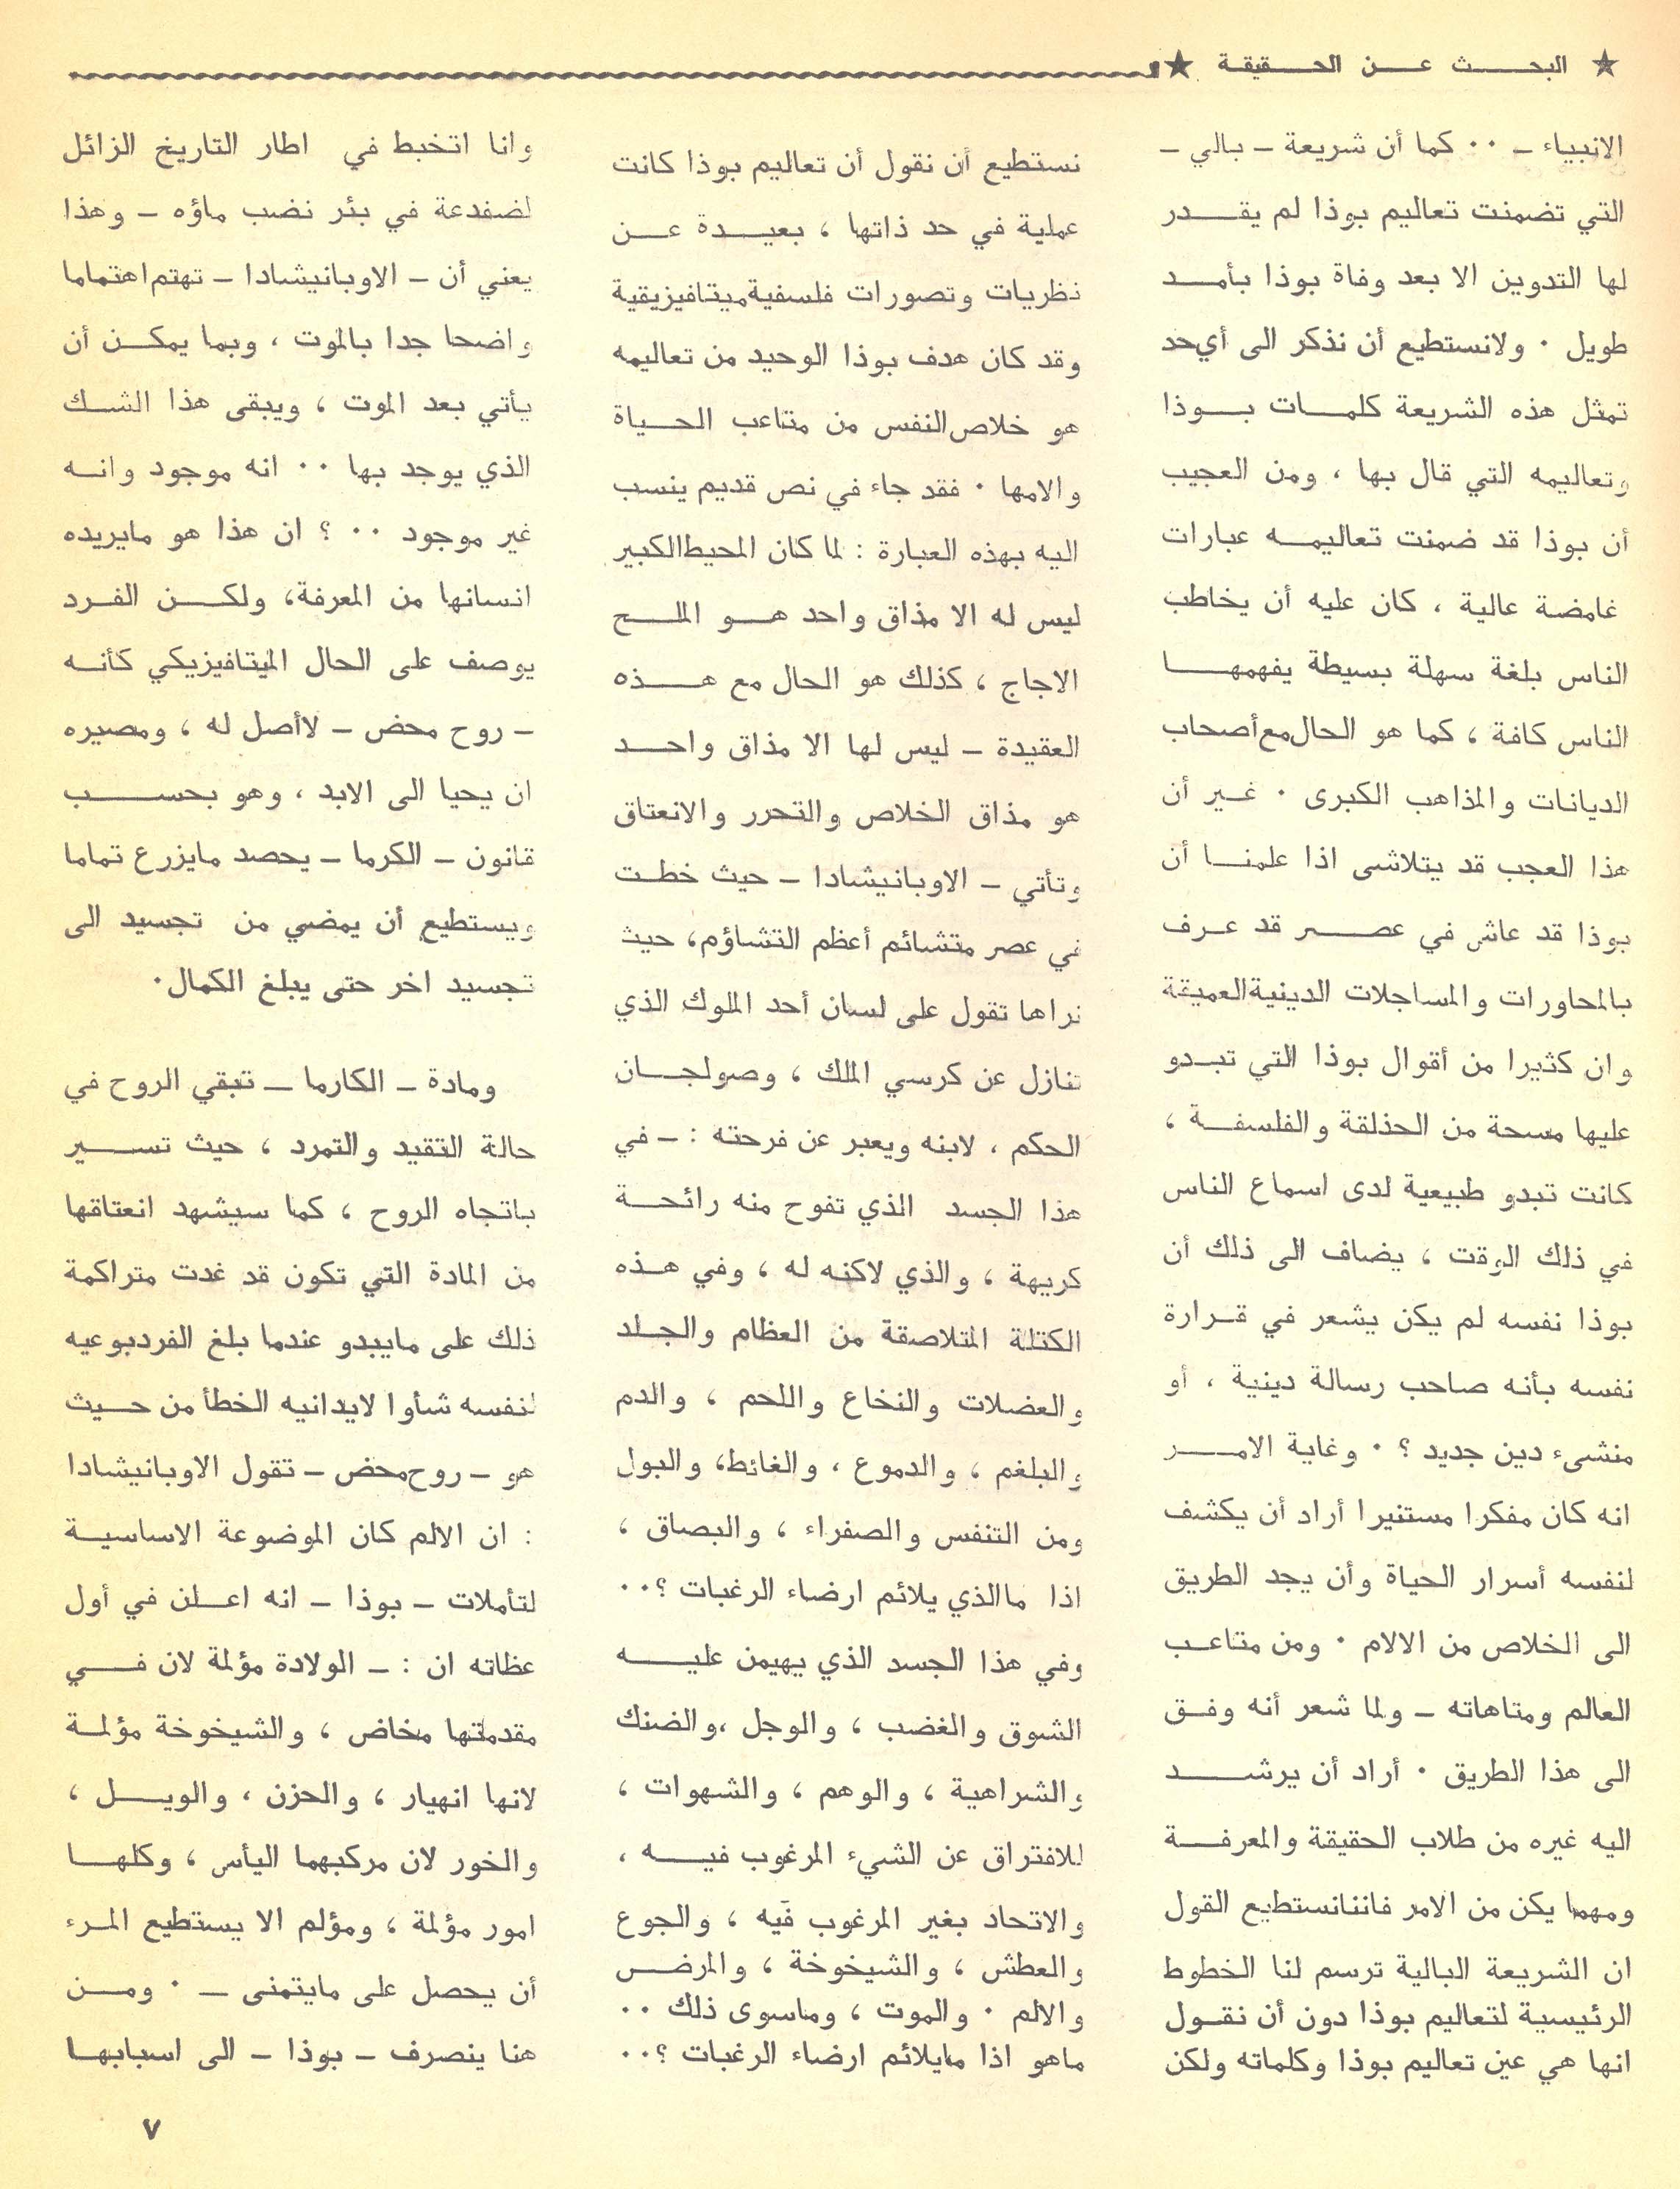 ★ البحث عن الحقيقة ★
الانبياء – ٠٠ كما أن شريعة – بالي –
التي تضمنت تعاليم بوذا لم يقدر
لها التدوين الا بعد وفاة بوذا بأمد
طويل ٠ ولانستطيع أن نذكر الى أي حد
تمثل هذه الشريعة كلمات بوذا
وتعاليمه التي قال بها ، ومن العجيب
أن بوذا قد ضمنت تعاليمه عبارات
غامضة عالية ، كان عليه أن يخاطب
الناس بلغة سهلة بسيطة يفهمها
الناس كافة ، كما هو الحال مع أصحاب
الديانات والمذاهب الكبرى ٠ غير أن
هذا العجب قد يتلاشى اذا علمنا أن
بوذا قد عاش في عصر قد عرف
بالمحاورات والمساجلات الدينية العميقة
وان كثيرا من أقوال بوذا التي تبدو
عليها مسحة من الحذلقة والفلسفة ،
كانت تبدو طبيعية لدى اسماع الناس
في ذلك الوقت ، يضاف الى ذلك أن
بوذا نفسه لم يكن يشعر في قرارة
نفسه بأنه صاحب رسالة دينية ، أو
منشىء دين جديد ؟ ٠ وغاية الامر
انه كان مفكرا مستنيرا أراد أن يكشف
لنفسه أسرار الحياة وأن يجد الطريق
الى الخلاص من الالام ٠ ومن متاعب
العالم ومتاهاته – ولما شعر أنه وفق
الى هذا الطريق ٠ أراد أن يرشد
اليه غيره من طلاب الحقيقة والمعرفة
ومهما يكن من الامر فاننانستطيع القول
ان الشريعة البالية ترسم لنا الخطوط
الرئيسية لتعاليم بوذا دون أن نقول
انها هي عين تعاليم بوذا وكلماته ولكن
نستطيع أن نقول أن تعاليم بوذا كانت
عملية في حد ذاتها ، بعيدة عن
نظريات وتصورات فلسفية ميتافيزيقية
وقد كان هدف بوذا الوحيد من تعاليمه
هو خلاص النفس من متاعب الحياة
والامها ٠ فقد جاء في نص قديم ينسب
اليه بهذه العبارة : لما كان المحيط الكبير
ليس له الا مذاق واحد هو الملح
الاجاج ، كذلك هو الحال مع هذه
العقيدة – ليس لها الا مذاق واحد
هو مذاق الخلاص والتحرر والانعتاق
وتأتي – الاوبانيشادا – حيث خطت
في عصر متشائم أعظم التشاؤم، حيث
نراها تقول على لسان أحد الملوك الذي
تنازل عن كرسي الملك ، وصولجان
الحكم ، لابنه ويعبر عن فرحته : – في
هذا الجسد الذي تفوح منه رائحة
كريهة ، والذي لاكنه له ، وفي هذه
الكتلة المتلاصقة من العظام والجلد
والعضلات والنخاع واللحم ، والدم
والبلغم ، والدموع ، والغائط، والبول
ومن التنفس والصفراء ، والبصاق ،
اذا ماالذي يلائم ارضاء الرغبات ؟٠٠
وفي هذا الجسد الذي يهيمن عليه
الشوق والغضب ، والوجل ،والضنك
والشراهية ، والوهم ، والشهوات ،
للافتراق عن الشيء المرغوب فيه ،
والاتحاد بغير المرغوب فيه ، والجوع
والعطش ، والشيخوخة ، والمرض
والالم ٠ والموت ، وماسوى ذلك ٠٠
ماهو اذا مايلائم ارضاء الرغبات ؟٠٠
وانا اتخبط في اطار التاريخ الزائل
لضفدعة في بئر نضب ماؤه – وهذا
يعني أن – الاوبانيشادا – تهتم اهتماما
واضحا جدا بالموت ، وبما يمكن أن
يأتي بعد الموت ، ويبقى هذا الشك
الذي يوجد بها ٠٠ انه موجود وانه
غير موجود ٠٠ ؟ ان هذا هو مايريده
انسانها من المعرفة، ولكن الفرد
يوصف على الحال الميتافيزيكي كأنه
– روح محض – لاأصل له ، ومصيره
ان يحيا الى الابد ، وهو بحسب
قانون – الكرما – يحصد مايزرع تماما
ويستطيع أن يمضي من تجسيد الى
تجسيد اخر حتى يبلغ الكمال٠
ومادة – الكارما – تبقي الروح في
حالة التقيد والتمرد ، حيث تسير
باتجاه الروح ، كما سيشهد انعتاقها
من المادة التي تكون قد غدت متراكمة
ذلك على مايبدو عندما بلغ الفردبوعيه
لنفسه شأوا لايدانيه الخطأ من حيث
هو – روح محض – تقول الاوبانيشادا
: ان الالم كان الموضوعة الاساسية
لتأملات – بوذا – انه اعلن في أول
عظاته ان : – الولادة مؤلمة لان في
مقدمتها مخاض ، والشيخوخة مؤلمة
لانها انهيار ، والحزن ، والويل ،
والخور لان مركبهما اليأس ، وكلها
امور مؤلمة ، ومؤلم الا يستطيع المرء
أن يحصل على مايتمنى – ٠ ومن
هنا ينصرف – بوذا – الى اسبابها
٧